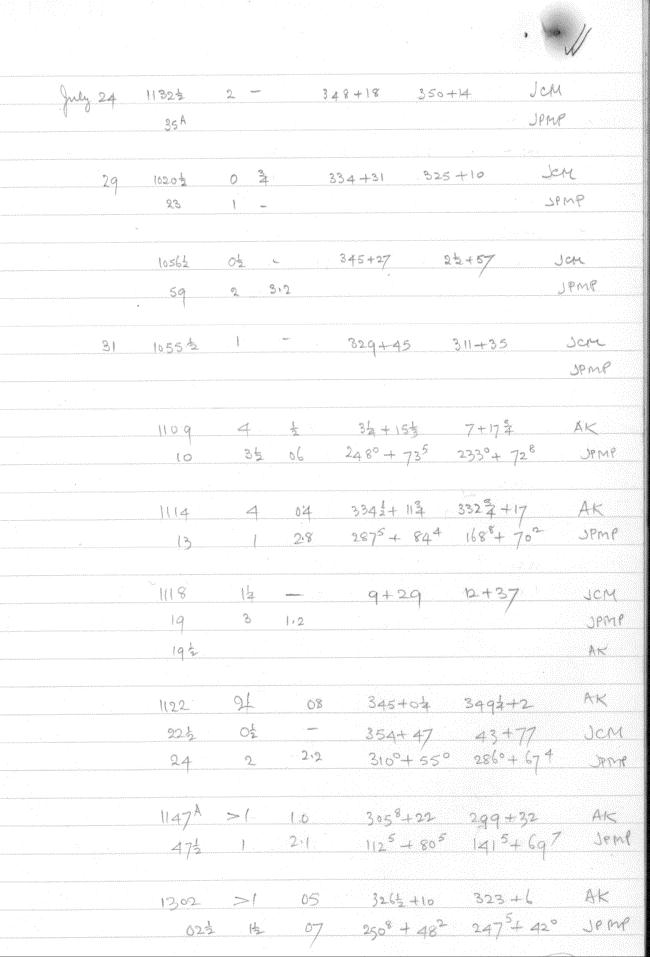 July 24 1132½ 2 - 348+18 350+14 JCM
35A JPMP
29 1020½ 0 ¾ 334+31 325+10 JCM
23 1 - JPMP
1056½ 0½ - 345+27 2½+57 JCM
59 2 3.2 JPMP
31 1055½ 1 - 329+45 311+35 JCM
JPMP
1109 4 ½ 3¼+15½ 7+17¾ AK
10 3½ 06 248⁰+73⁵ 233⁰+72⁸ JPMP
1114 4 04 334½+11¾ 332¾+17 AK
13 1 2.8 287⁵+84⁴ 168⁸+70² JPMP
1118 1½ — 9+29 12+37 JCM
19 3 1.2 JPMP
19½ AK
1122 08 345+0¼ 349½+2 AK
22½ 0½ - 354+47 43+77 JCM
24 2 2.2 310⁰+55⁰ 286⁰+67⁴ JPMP
1147A >1 1.0 305⁸+22 299+32 AK
47½ 1 2.1 112⁵+80⁵ 141⁵+69⁷ JPMP
1302 >1 05 326½+10 323+6 AK
02½ 1½ 07 250⁸+48² 247⁵+42⁰ JPMP